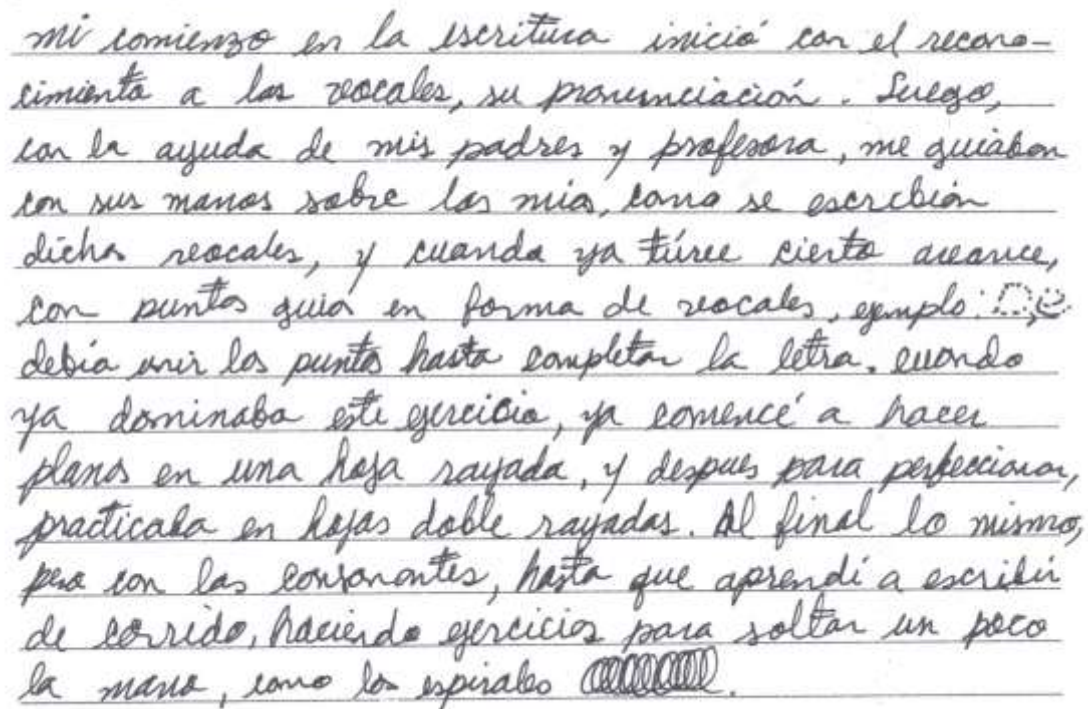 mi comienzo en la escritura inició con el recono-
cimiento a las vocales, su pronunciación. Luego,
con la ayuda de mis padres y profesora, me guiaban
con sus manos sobre las mias, como se escribían
dichas vocales, y cuando ya túve cierto avance,
con puntos guias en forma de vocales, ejemplo:
debía unir los puntos hasta completar la letra. cuando
ya dominaba este ejercicio, ya comencé a hacer
planas en una hoja rayada, y despues para perfeccionar,
practicaba en hojas doble rayadas. Al final lo mismo,
pero con las consonantes, hasta que aprendí a escribir
de corrido, haciendo ejercicios para soltar un poco
la mano, como los espirales .